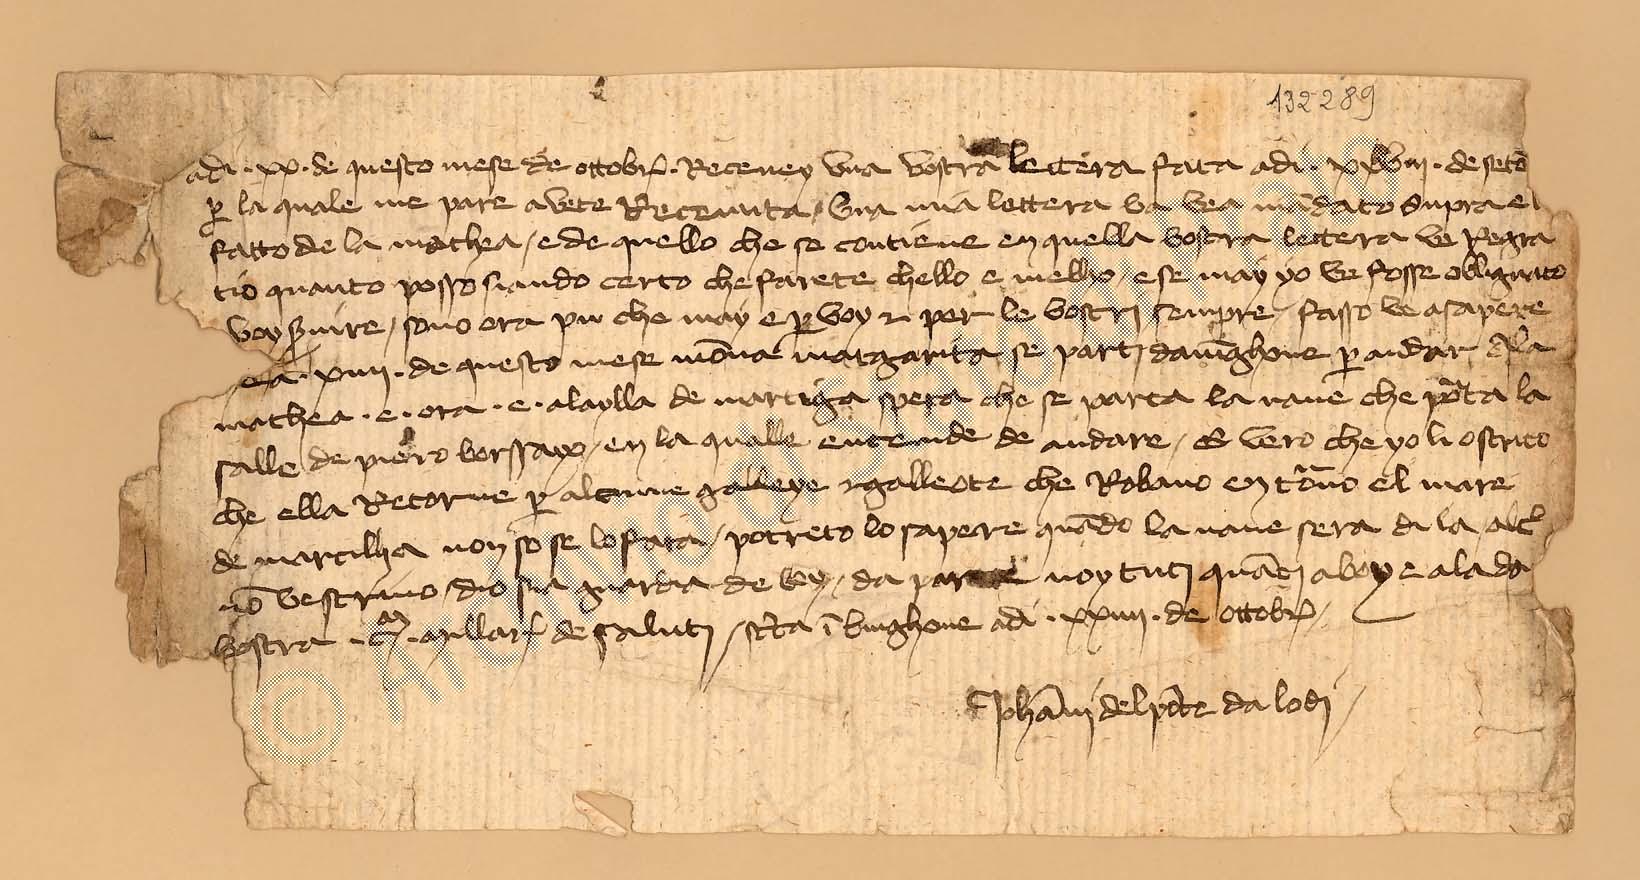 132289
adi · xx · de questo mese de ottobr̃ · Receuey vna vostra lettera fata adi · xxviii · de setẽ
p̱ la quale me pare avete Receuuta / vna mia lettera mãdato supra el
fatto de la mathea / e de quello che se contiene en quella vostra lettera ve Regra
tio quanto posso siando certo che farete chello e mellio / e se may yo ve fosse obligato
voy s̃uire / sono ora piu che may e p̱ voy per le vostri sempre / fasso ve asapere
xiiii · de questo mese mõna margarita se parti da uighone p̱ andar a la
mathea · e · ora · e · alaylla de martiga spera che se parta la naue che porta la
salle de piero borssayo / en la qualle entende de andare / E vero che yo li oscrito
che ella Retorne p̱ alcune galleye galleote che Robano en torno el mare
de marcilha non so se lo fara / potreto lo sapere quãdo la naue sera di la alt̃
nõ ve scriuo / dio sia guardia de voy / da parte noy tuti quãti a voy e a la dõ
vostra · c̃ · myllar̃ de saluti / sc̃ta ĩ vinghone adi · xxiiii · de ottobr̃ /
Johãni del põte da lodi /
© Archivio di Stato di Prato